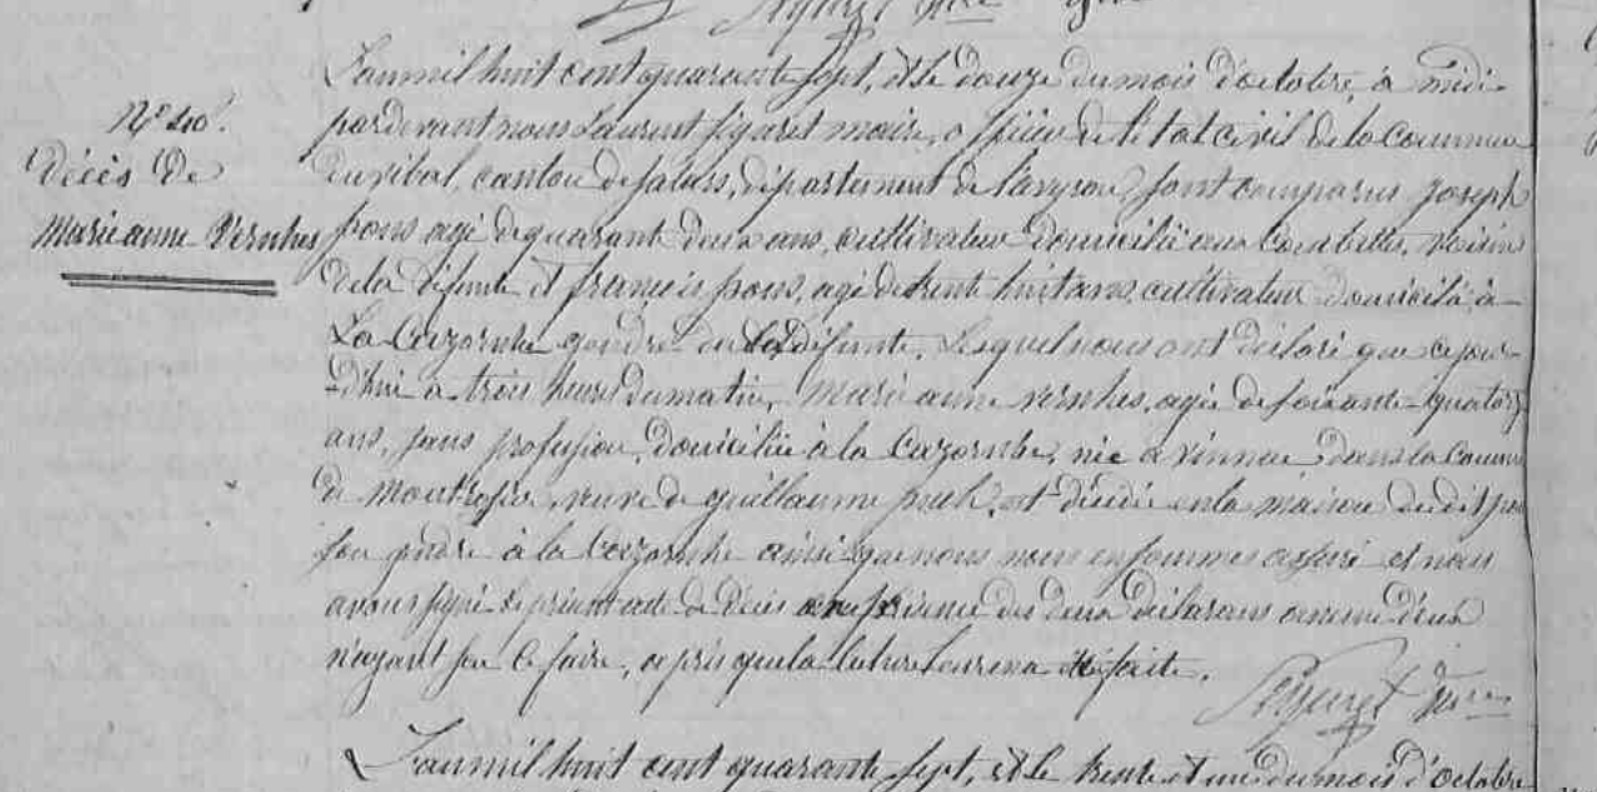 N° 40.
Décès de
Marie anne Vernhes
L'an mil huit cent quarante sept, et le douze du mois d'octobre, à midi
pardevant nous Laurent seguret maire, officier de l'état civil de la Commune
du vibal, canton de salars, département de l'aveyron, sont comparus Joseph
pons agé de quarante deux ans, cultivateur domicilié aux voisin
de la défunte et françois pons, agé de trente huit ans, cultivateur domicilié à
La Cazornhe gendre de la défunte, Lesquels nous ont déclaré que ce jour
d'hui à trois heures du matin, Marie anne vernhes, agée de soixante-quatorze
ans, sans profession, domiciliée à la Cazornhe, née à dans la Commune
de veuve de guillaume puech, est décédée en la maison dudit pons
son gendre à la Cazornhe ainsi que nous nous en sommes assuré et nous
avons signé le présent acte de décès en présence des deux déclarans aucun d'eux
n'ayant su le faire, après que la lecture leur en a été faite.
Seguret
L'an mil huit cent quarante sept, et le trente et un du mois d'octobre